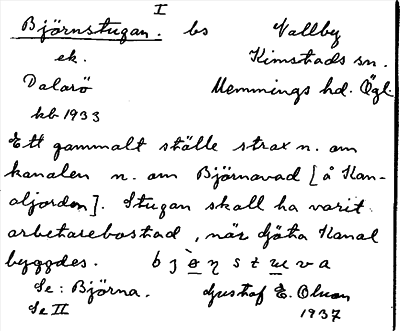 I
Björnstugan. bs Vallby
ek. Kimstads sn.
Dalarö Memmings hd. Ögl.
kb 1933
Ett gammalt ställe strax n. om
kanalen n. om Björnavad [å Kan-
aljorden]. Stugan skall ha varit
arbetarebostad, när Göta Kanal
byggdes.
Se: Björna. Gustaf E. Olson
Se II 1937